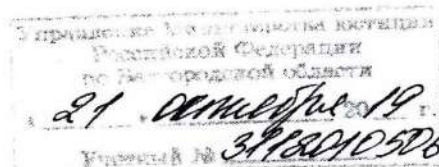 Управление Министерства юстиции
Российской Федерации
по Белгородской области
"21" октября 2019 г.
Учетный №